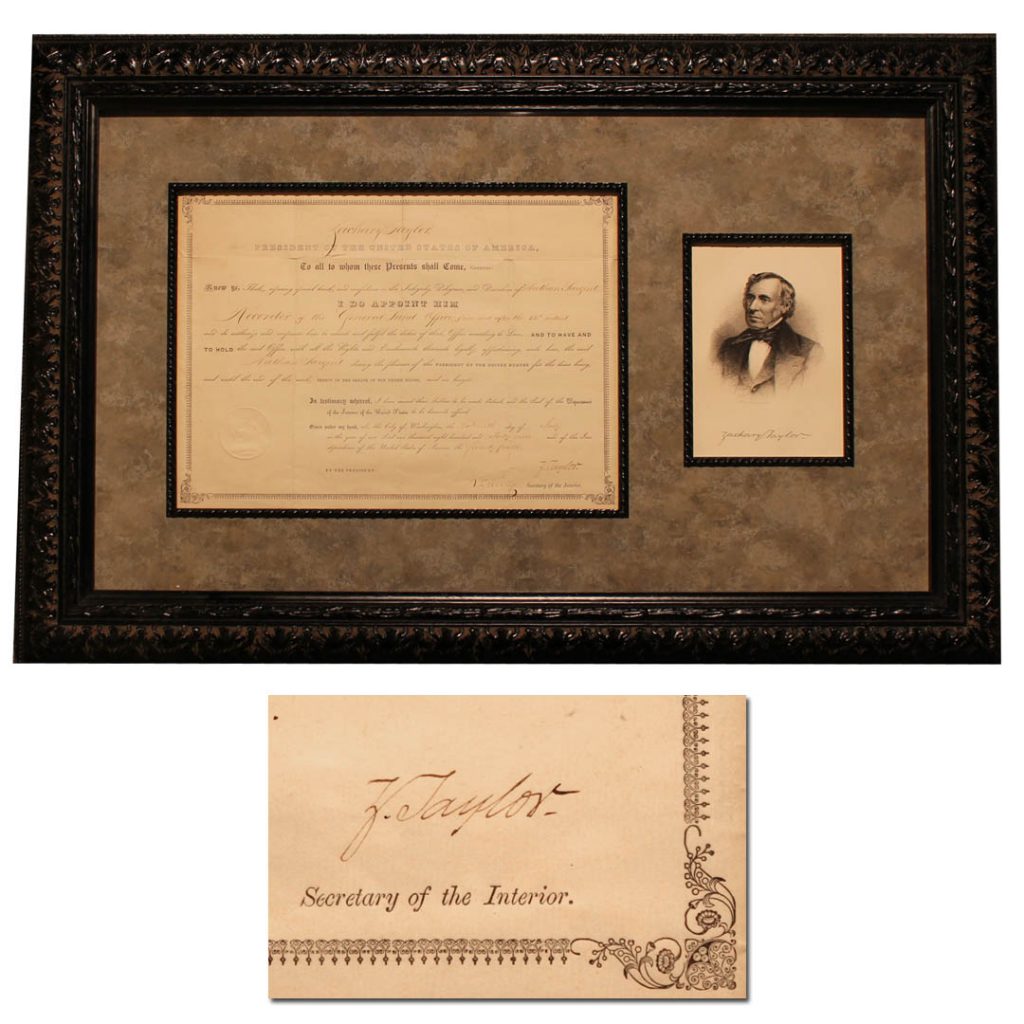 Zachary Taylor
PRESIDENT OF THE UNITED STATES OF AMERICA,
To all to whom these Presents shall Come, GREETING:
Know ye, That, reposing special trust and confidence in the Integrity, Diligence, and Discretion of Nathan Sargent
I DO APPOINT HIM
Recorder of the General Land Office, from and after the instant
and do authorize and empower him to execute and fulfil the duties of that Office according to Law, AND TO HAVE AND
TO HOLD the said Office, with all the Rights and Emoluments thereunto legally appertaining, unto him, the said
Nathan Sargent during the pleasure of the PRESIDENT OF THE UNITED STATES for the time being,
and until the end of the next SESSION OF THE SENATE OF THE UNITED STATES, and no longer.
In testimony whereof, I have caused these Letters to be made Patent, and the Seal of the Department
of the Interior of the United States to be hereunto affixed.
Given under my hand, at the City of Washington, the day of July
in the year of our Lord one thousand eight hundred and forty nine and of the Inde-
pendence of the United States of America the
Z. Taylor
BY THE PRESIDENT:
Secretary of the Interior.
Zachary Taylor
Z. Taylor
Secretary of the Interior.